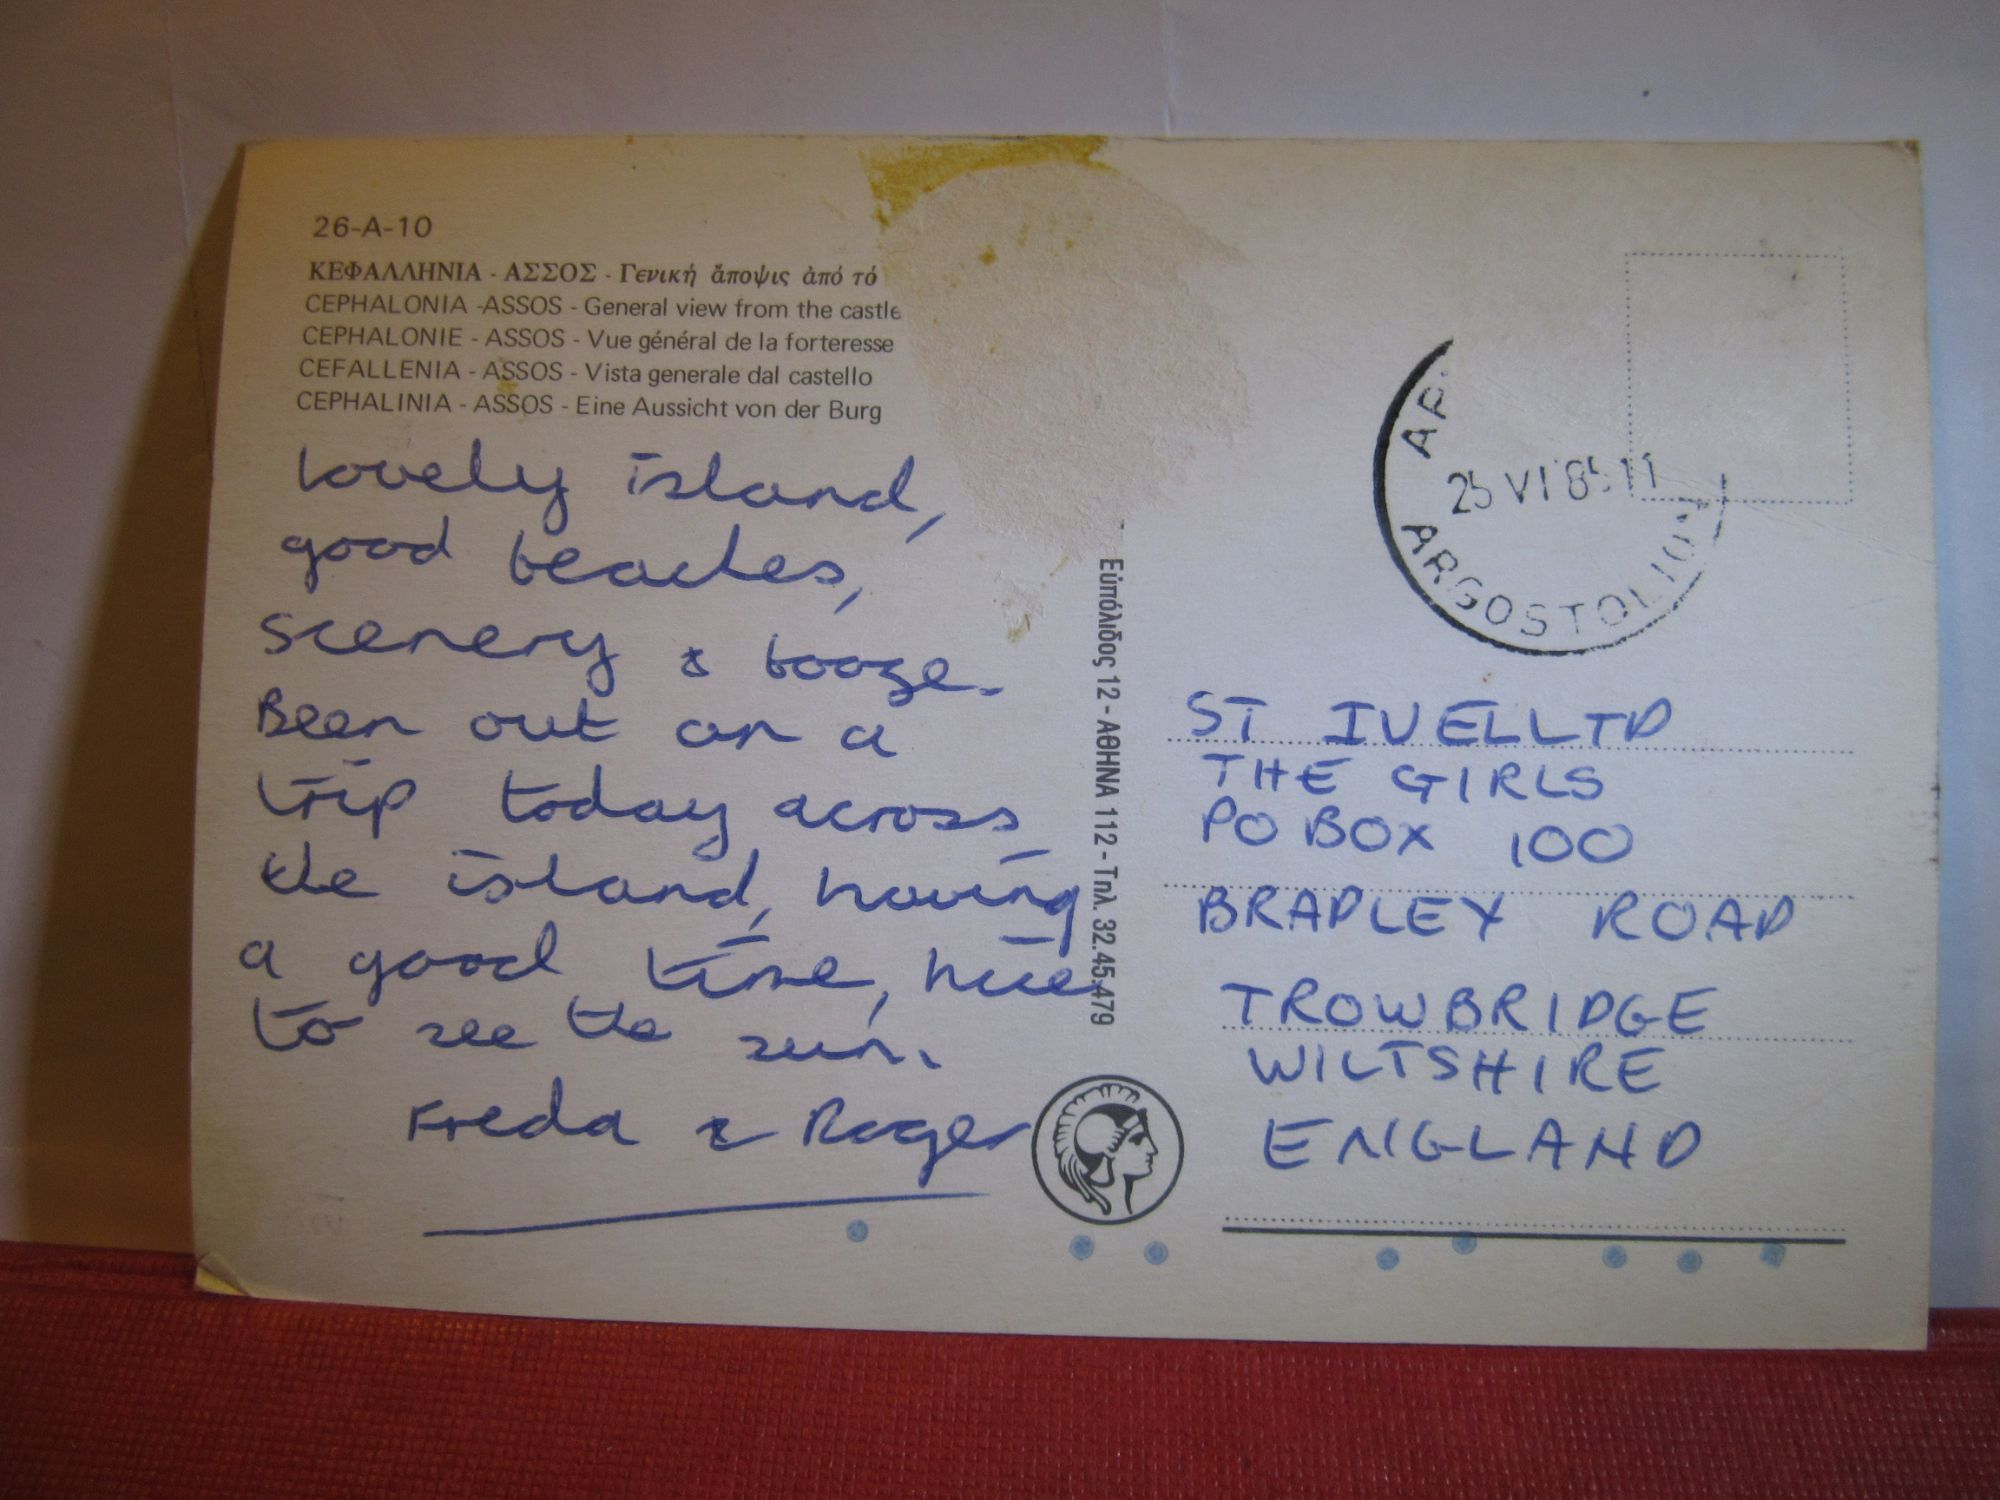 26-A-10
ΚΕΦΑΛΛΗΝΙΑ - ΑΣΣΟΣ - Γενική ἄποψις ἀπό τό
CEPHALONIA -ASSOS - General view from the castle
CEPHALONIE - ASSOS - Vue général de la forteresse
CEFALLENIA - ASSOS - Vista generale dal castello
CEPHALINIA - ASSOS - Eine Aussicht von der Burg
Lovely island,
good beaches,
scenery & booze.
Been out on a
trip today across
the island, having
a good time, nice
to see the sun.
Freda & Roger
Εὐπόλιδος 12 - ΑΘΗΝΑ 112 - Τηλ. 32.45.479
25 VI 85 11
ARGOSTOLION
ST IVEL LTD
THE GIRLS
PO BOX 100
BRADLEY ROAD
TROWBRIDGE
WILTSHIRE
ENGLAND